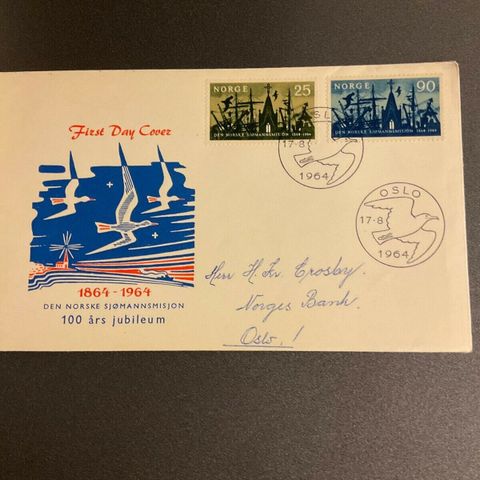 NORGE 25
DEN NORSKE SJØMANNSMISJON 1864-1964
NORGE 90
DEN NORSKE SJØMANNSMISJON 1864-1964
First Day Cover
OSLO
17-8
1964
OSLO
17-8
1964
1864-1964
DEN NORSKE SJØMANNSMISJON
100 års jubileum
Herr H. Fr. Crosby.
Norges Bank.
Oslo, !